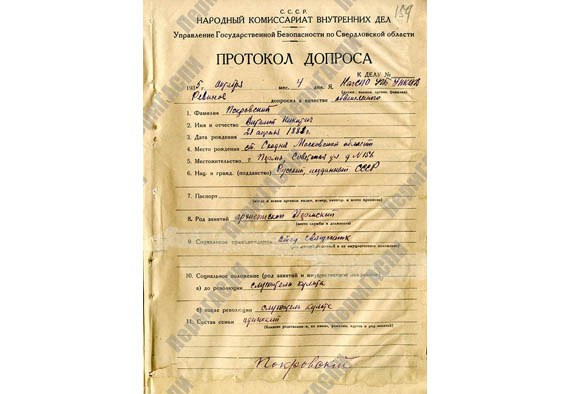 159
С. С. С. Р.
НАРОДНЫЙ КОМИССАРИАТ ВНУТРЕННИХ ДЕЛ
Управление Государственной Безопасности по Свердловской области
ПРОТОКОЛ ДОПРОСА
К ДЕЛУ №
1935 октября мес. 4 дня. Я,
допросил в качестве обвиняемого
1. Фамилия Покровский
2. Имя и отчество Никитич
3. Дата рождения 21 апреля
4. Место рождения ст. Сходня Московской области
5. Местожительство г. Пермь, Советская ул. д №
6. Нац. и гражд. (подданство) Русский, СССР
7. Паспорт
8. Род занятий архиепископ
(место службы и должность)
9. Социальное происхождение отец священник
10. Социальное положение (род занятий и имущественное положение)
а) до революции служитель культа
б) после революции служитель культа
11. Состав семьи одинокий
Покровский